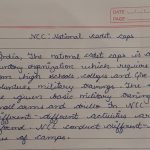 DATE
PAGE
NCC: National cadet caps
India, The national cadet caps is a
voluntary organization which requires
from high schools, collegs and
military trainings. The
given basic military
small arms and
different different activities are
found. NCC conduct different-
of camps.